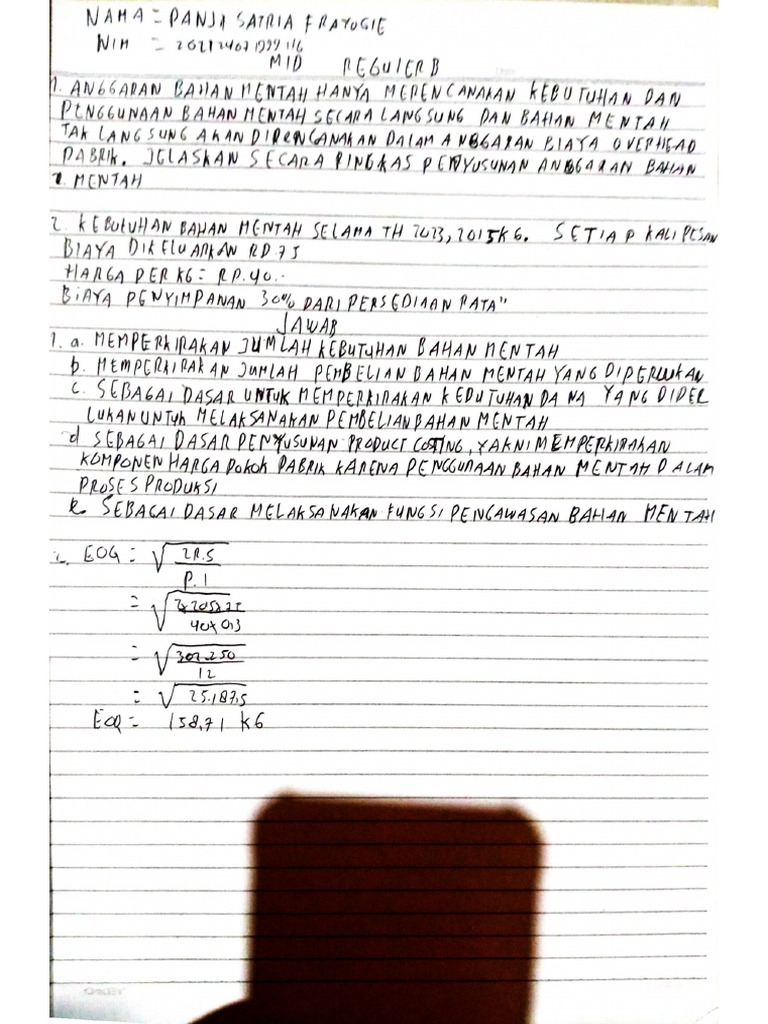 NAMA = PANJI SATRIA PRAYOGIE
NIM =
MID REGULER B
1. ANGGARAN BAHAN MENTAH HANYA MERENCANAKAN KEBUTUHAN DAN
PENGGUNAAN BAHAN MENTAH SECARA LANGSUNG DAN BAHAN MENTAH
TAK LANGSUNG AKAN DIRENCANAKAN DALAM ANGGARAN BIAYA OVERHEAD
PABRIK. JELASKAN SECARA RINGKAS PENYUSUNAN ANGGARAN BAHAN
MENTAH
2. KEBUTUHAN BAHAN MENTAH SELAMA TH 2023, 2015 KG. SETIAP KALI PESAN
BIAYA DIKELUARKAN RP.75
HARGA PER KG = RP.40.-
BIAYA PENYIMPANAN 30% DARI PERSEDIAAN RATA"
JAWAB
1. a. MEMPERKIRAKAN JUMLAH KEBUTUHAN BAHAN MENTAH
b. MEMPERKIRAKAN JUMLAH PEMBELIAN BAHAN MENTAH YANG DIPERLUKAN
c. SEBAGAI DASAR UNTUK MEMPERKIRAKAN KEBUTUHAN DANA YANG DIPER
LUKAN UNTUK MELAKSANAKAN PEMBELIAN BAHAN MENTAH
d SEBAGAI DASAR PENYUSUNAN PRODUCT COSTING, YAKNI MEMPERKIRAKAN
KOMPONEN HARGA POKOK PABRIK KARENA PENGGUNAAN BAHAN MENTAH DALAM
PROSES PRODUKSI
e. SEBAGAI DASAR MELAKSANAKAN FUNGSI PENGAWASAN BAHAN MENTAH
EOQ = √ 2R.S
P.I
= √
40x0,3
= √ 302.250
12
= √ 25.187,5
EOQ = 158,71 KG